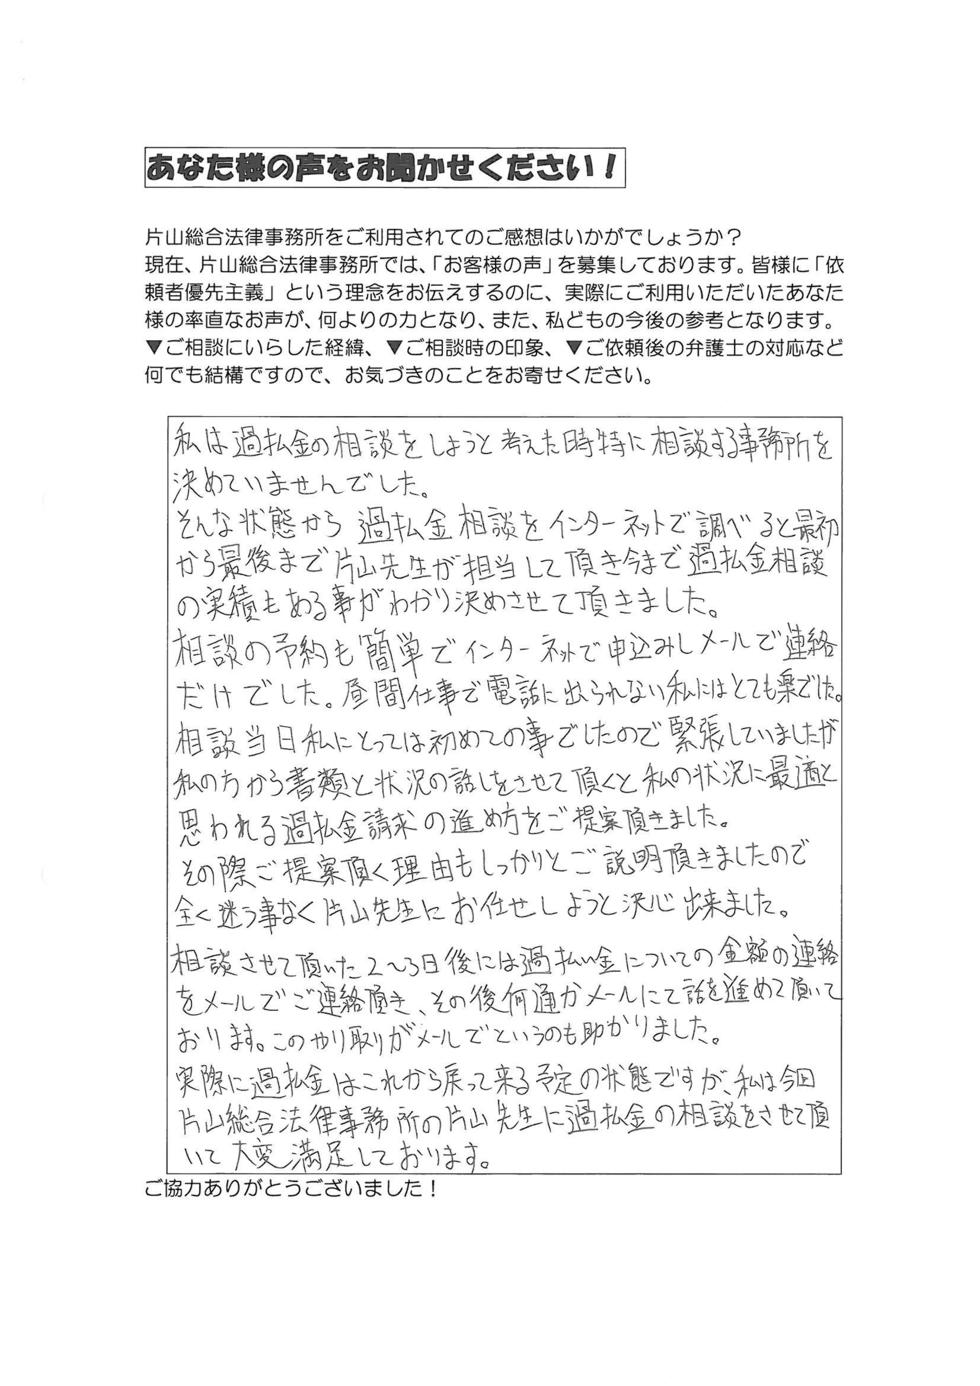 あなた様の声をお聞かせください！
片山総合法律事務所をご利用されてのご感想はいかがでしょうか？
現在、片山総合法律事務所では、「お客様の声」を募集しております。皆様に「依
頼者優先主義」という理念をお伝えするのに、実際にご利用いただいたあなた
様の率直なお声が、何よりの力となり、また、私どもの今後の参考となります。
▼ご相談にいらした経緯、▼ご相談時の印象、▼ご依頼後の弁護士の対応など
何でも結構ですので、お気づきのことをお寄せください。
私は過払金の相談をしようと考えた時特に相談する事務所を
決めていませんでした。
そんな状態から過払金相談をインターネットで調べると最初
から最後まで片山先生が担当して頂き今まで過払金相談
の実積もある事がわかり決めさせて頂きました。
相談の予約も簡単でインターネットで申込みしメールで連絡
だけでした。昼間仕事で電話に出られない私にはとても楽でした。
相談当日私にとっては初めての事でしたので緊張していましたが
私の方から書類と状況の話しをさせて頂くと私の状況に最適と
思われる過払金請求の進め方をご提案頂きました。
その際ご提案頂く理由もしっかりとご説明頂きましたので
全く迷う事なく片山先生にお任せしようと決心出来ました。
相談させて頂いた2～3日後には過払い金についての金額の連絡
をメールでご連絡頂き、その後何通かメールにて話を進めて頂いて
おります。このやり取りがメールでというのも助かりました。
実際に過払金はこれから戻って来る予定の状態ですが、私は今回
片山総合法律事務所の片山先生に過払金の相談をさせて頂
いて大変満足しております。
ご協力ありがとうございました！